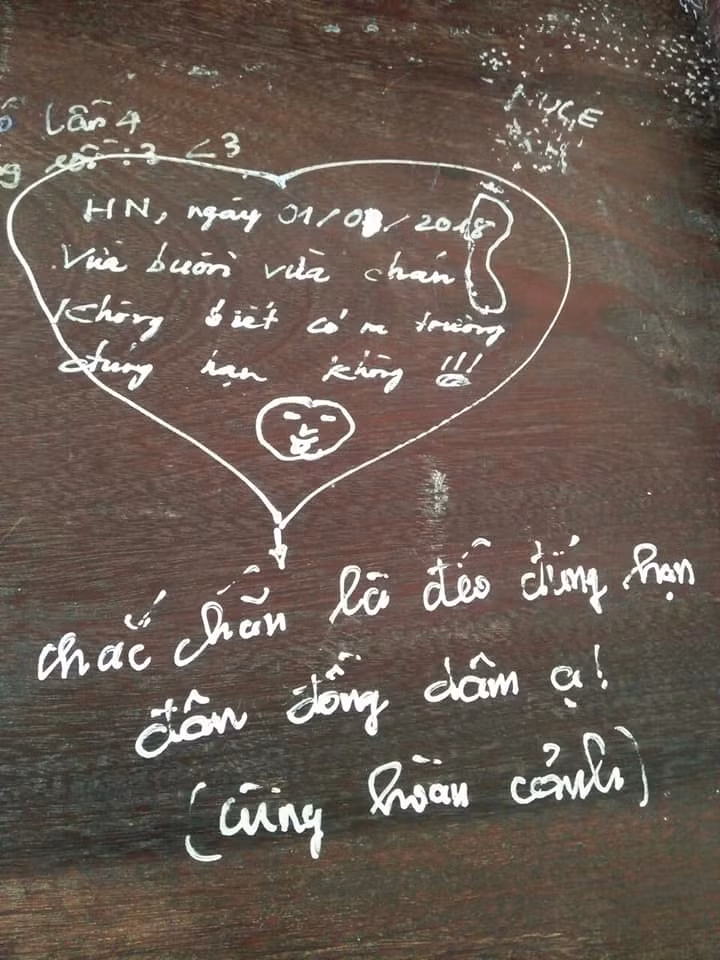 Lần 4
<3
HUGE
HN, ngày 01/03/2018
Vừa buồn vừa chán
Không biết có ra trường
đúng hạn không !!!
chắc chắn là đéo đúng hạn
đân đống dâm ạ!
(cùng hoàn cảnh)